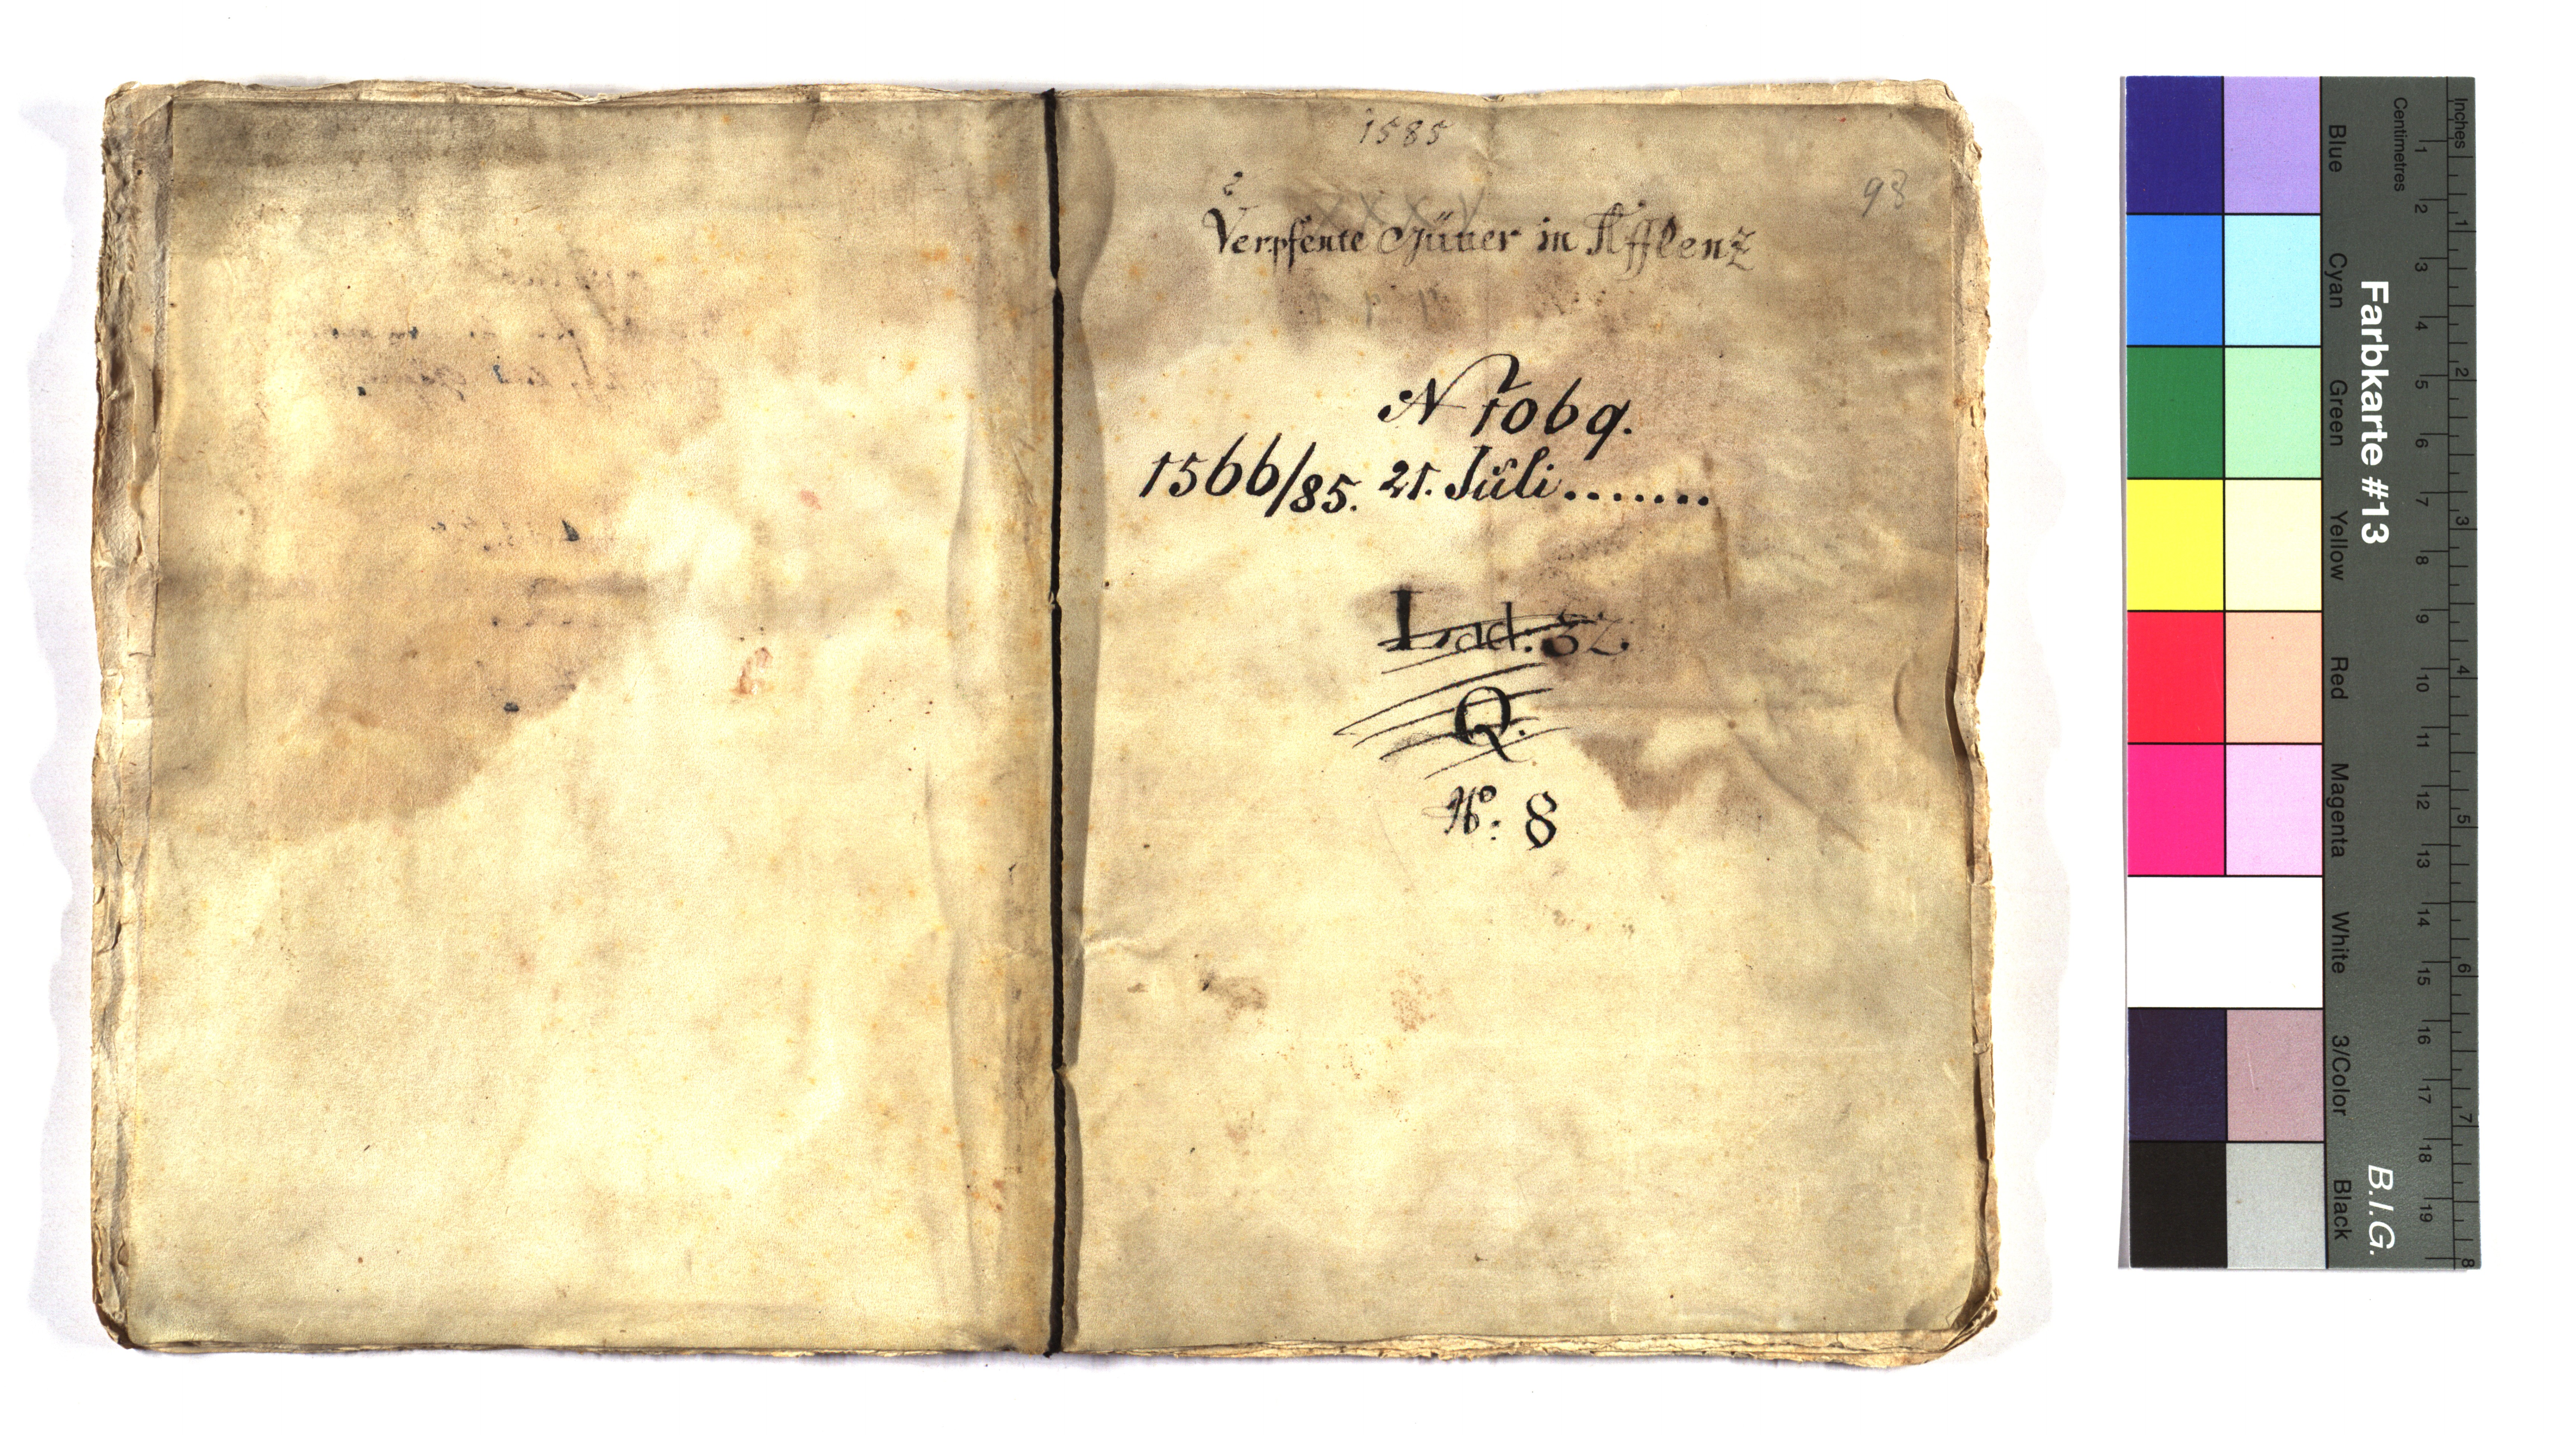 1585
93
XXXV
Verpfente Gütter in Afflenz
N 1069.
1566/85. 21. Juli.......
Lad: 32.
Q.
No: 8
Farbkarte #13
B.I.G.
Blue
Cyan
Green
Yellow
Red
Magenta
White
3/Color
Black
Centimetres
1 2 3 4 5 6 7 8 9 10 11 12 13 14 15 16 17 18 19
Inches
1 2 3 4 5 6 7 8